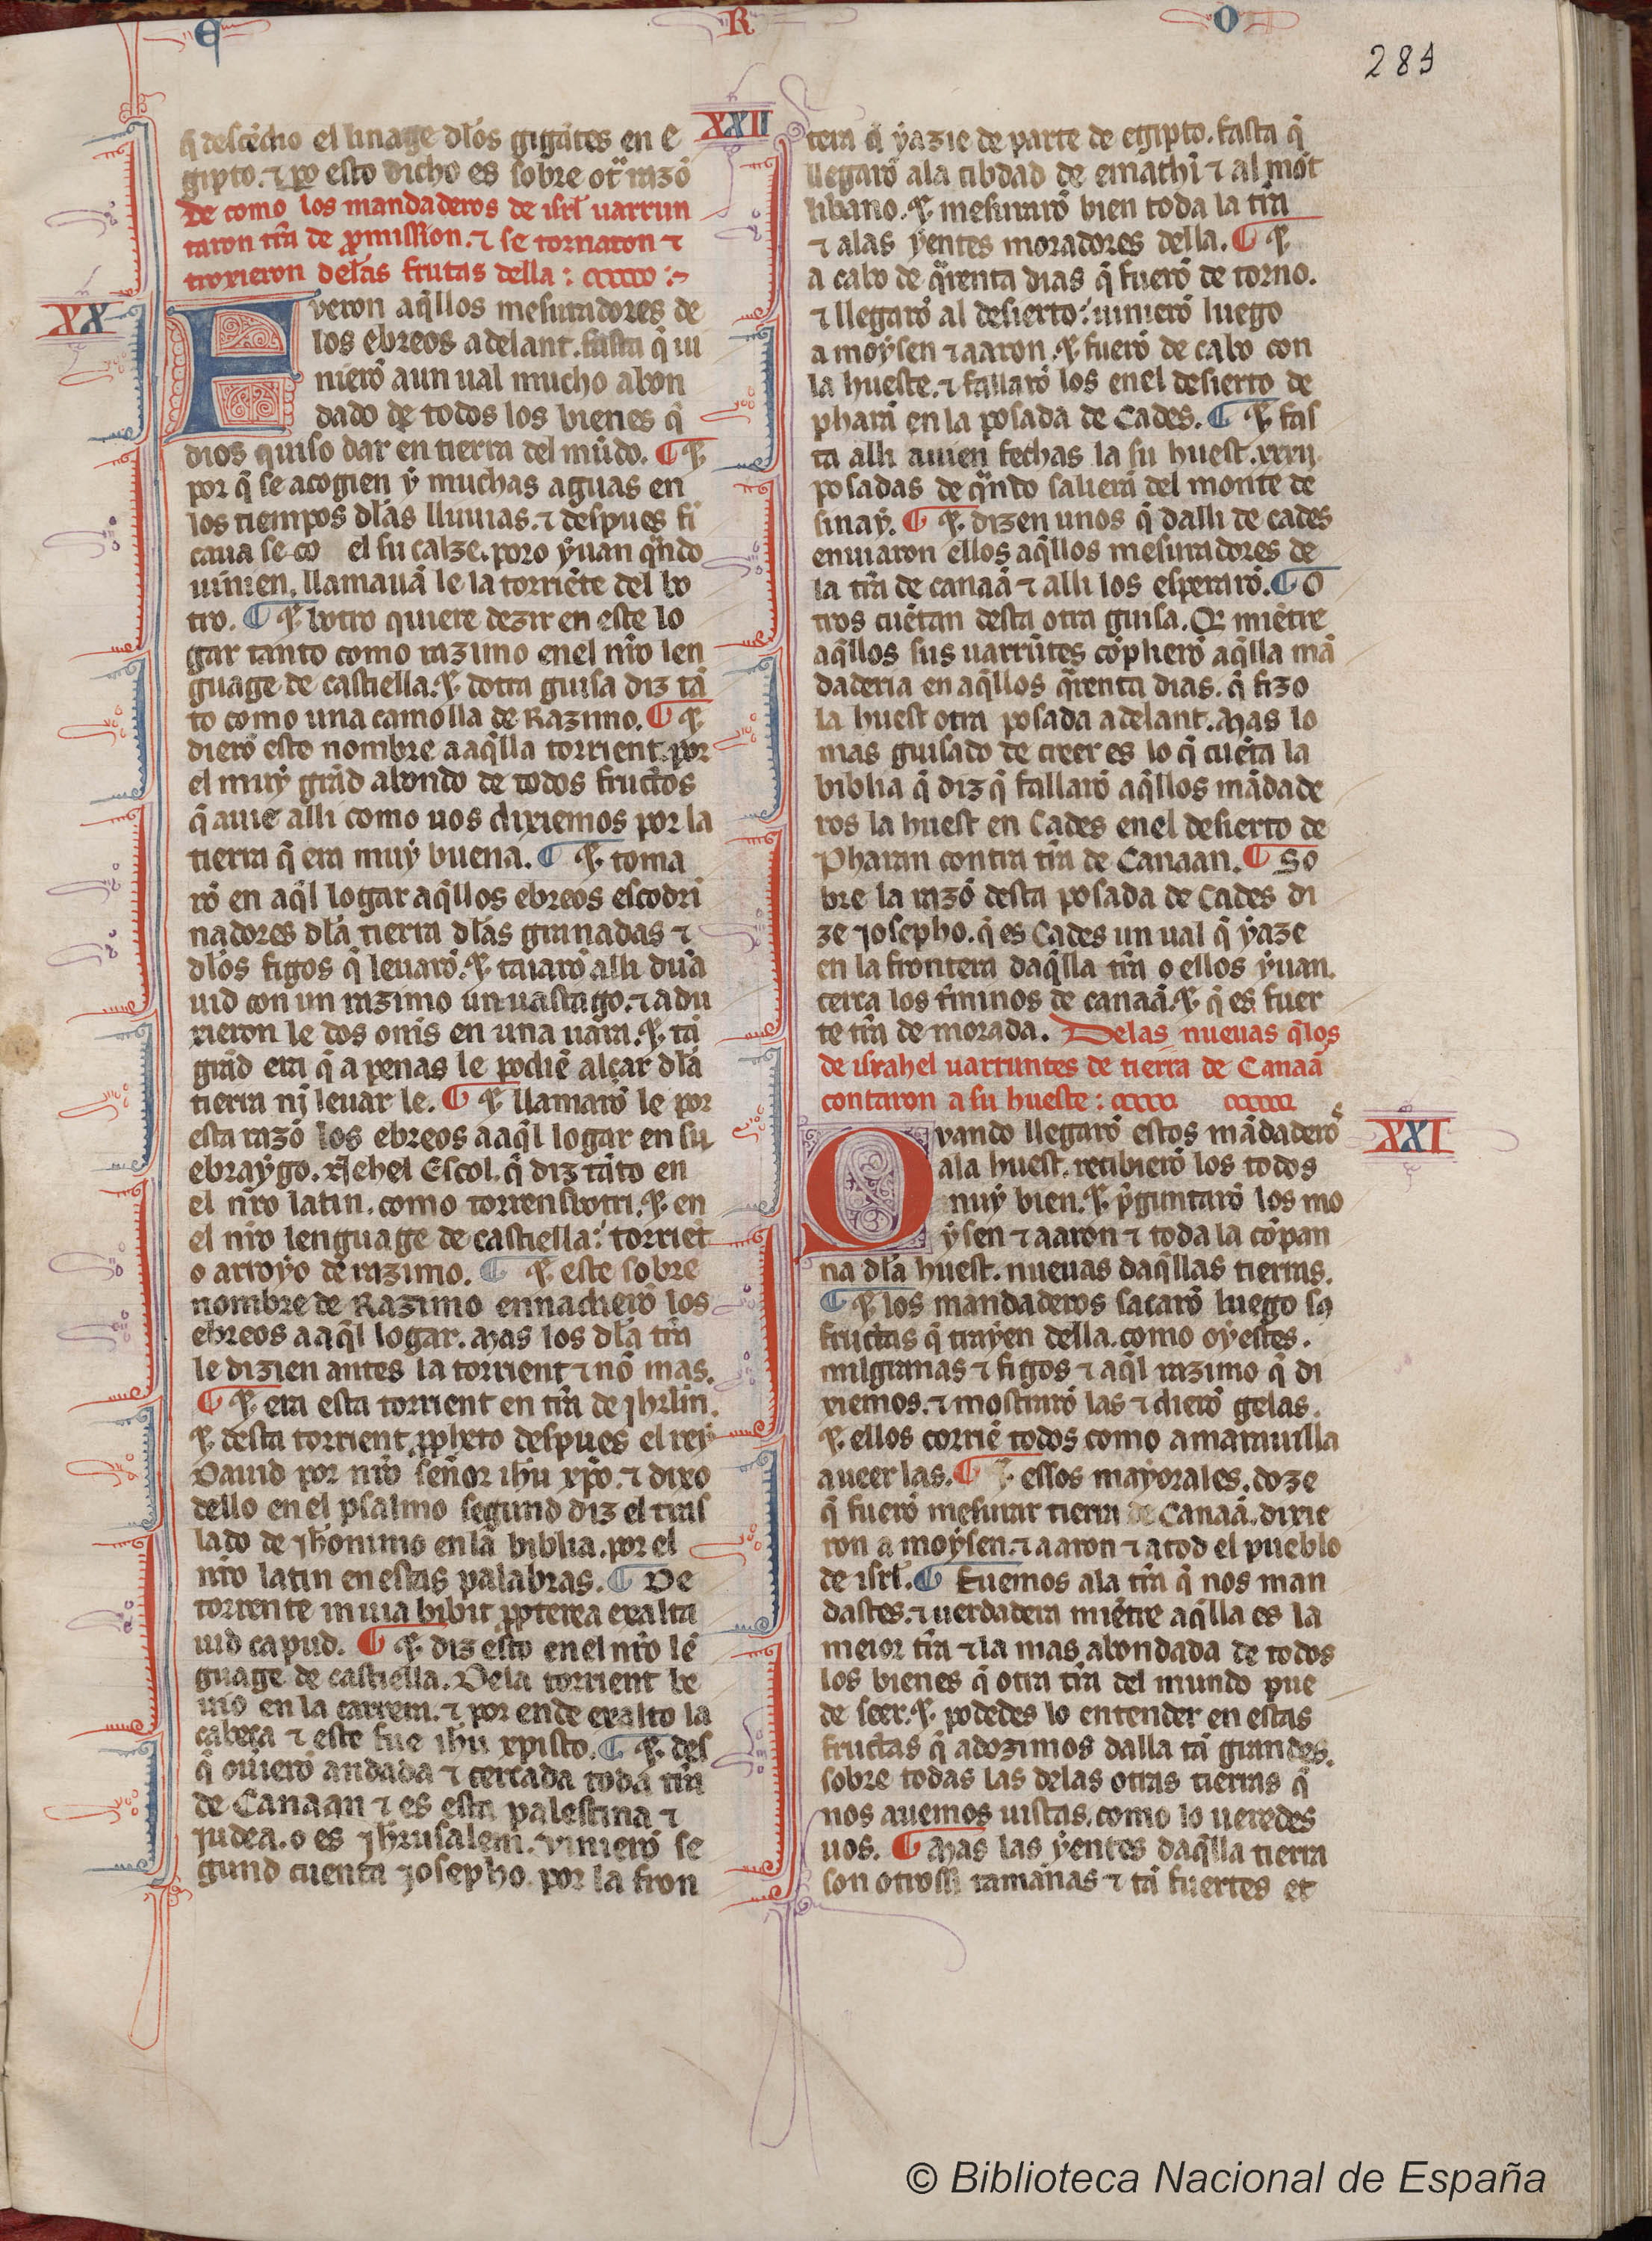 E R O
289
XXII
q̃ descẽdio el linage dl̃os gigãtes en e
gipto. ⁊ po esto dicho es sobre ot̃ razõ
De como los mandaderos de isrl̃ uarrun
taron trr̃a de p̃mission. ⁊ se tornaron ⁊
troxieron delas frutas della:
XX
Fveron aq̃llos mesuradores de
los ebreos adelant. fasta q̃ ui
nierõ aun ual mucho abon
dado de todos los bienes q̃
dios quiso dar en tierra del mũdo. ¶ ⁊
por q̃ se acogien ẏ muchas aguas en
los tiempos dl̃as lluuias. ⁊ despues fi
caua se co el su calze. poro ẏuan qñdo
uinien. llamauã le la torriẽte del bo
tro. ¶ ⁊ botro quiere dezir en este lo
gar tanto como razimo enel nr̃o len
guage de castiella. ⁊ dotra guisa diz tã
to como una camolla de Razimo. ¶ ⁊
dierõ este nombre a aq̃lla torrient por
el muẏ grãd abondo de todos fructos
q̃ auie alli como uos dixiemos por la
tierra q̃ era muẏ buena. ¶ ⁊ toma
rõ en aq̃l logar aq̃llos ebreos escodri
nadores dl̃a tierra dl̃as granadas ⁊
dl̃os figos q̃ leuarõ. ⁊ taiarõ alli dũa
uid con un razimo un uastago. ⁊ adu
xieron le dos om̃s en una uara. ⁊ tã
grãd era q̃ a penas le podiẽ alçar dl̃a
tierra nj leuar le. ¶ ⁊ llamarõ le por
esta razõ los ebreos a aq̃l logar en su
ebraẏgo. Nehel Escol. q̃ diz tãto en
el nr̃o latin. como torrens botri. ⁊ en
el nr̃o lenguage de castiella: torriẽt
o arroẏo de razimo. ¶ ⁊ este sobre
nombre de Razimo ennadierõ los
ebreos a aq̃l logar. Mas los dl̃a trr̃a
le dizien antes la torrient ⁊ nõ mas.
¶ ⁊ era esta torrient en trr̃a de jhrl̃m.
⁊ desta torrient p̃pheto despues el reẏ
Dauid por nr̃o señor ihũ xp̃o. ⁊ dixo
dello en el psalmo segund diz el tras
lado de jheronimo en la biblia. por el
nr̃o latin en estas palabras. ¶ De
torrente in uia bibit p̃pterea exalta
uid capud. ¶ ⁊ diz esto en el nr̃o lẽ
guage de castiella. Dela torrient be
uio en la carrera. ⁊ por ende exalto la
cabeça ⁊ este fue ihũ xpisto. ¶ ⁊ des
q̃ ouierõ andada ⁊ cercada toda trr̃a
de Canaan ⁊ es esta palestina ⁊
judea. o es jherusalem. Vinierõ se
gund cuenta josepho por la fron
tera q̃ ẏazie de parte de egipto. fasta q̃
llegarõ ala cibdad de emathi ⁊ al mõt
libano. ⁊ mesurarõ bien toda la trr̃a
⁊ alas ẏentes moradores della. ¶ ⁊
a cabo de q̃renta dias q̃ fuerõ de torno.
⁊ llegarõ al desierto: uinierõ luego
a moẏsen ⁊ aaron. ⁊ fuerõ de cabo con
la hueste. ⁊ fallarõ los en el desierto de
pharã en la posada de Cades. ¶ ⁊ fas
ta alli auien fechas la su huest. xxxij.
posadas de qñdo salierã del monte de
sinaẏ. ¶ ⁊ dizen unos q̃ dalli de cades
enuiaron ellos aq̃llos mesuradores de
la trr̃a de canaã ⁊ alli los esperarõ. ¶ O
tros cuẽtan desta otra guisa. Q̃ miẽtre
aq̃llos sus uarrũtes cõplierõ aq̃lla mã
daderia en aq̃llos q̃renta dias. q̃ fizo
la huest otra posada adelant. Mas lo
mas guisado de creer es lo q̃ cuẽta la
biblia q̃ diz q̃ fallarõ aq̃llos mãdade
ros la huest en Cades en el desierto de
Pharan contra trr̃a de Canaan. ¶ So
bre la razõ desta posada de Cades di
ze josepho. q̃ es Cades un ual q̃ ẏaze
en la frontera daq̃lla trr̃a o ellos ẏuan.
cerca los t̃minos de canaã. ⁊ q̃ es fuer
te trr̃a de morada. Delas nueuas q̃ los
de israhel uarruntes de tierra de Canaã
contaron a su hueste:
XXI
Qvando llegarõ estos mãdaderos
ala huest. recibierõ los todos
muẏ bien. ⁊ p̃guntarõ los mo
ẏsen ⁊ aaron ⁊ toda la cõpan
na dl̃a huest. nueuas daq̃llas tierras.
¶ ⁊ los mandaderos sacarõ luego sus
fructas q̃ traẏen della. como oẏestes.
milgranas ⁊ figos ⁊ aq̃l razimo q̃ di
xiemos. ⁊ mostrarõ las ⁊ dierõ gelas.
⁊ ellos corriẽ todos como a marauilla
a ueer las. ¶ ⁊ essos maẏorales. doze
q̃ fuerõ mesurar tierra de Canaã. dixie
ron a moẏsen. ⁊ a aaron ⁊ a tod el pueblo
de isrl̃. ¶ Fuemos ala trr̃a q̃ nos man
dastes. ⁊ uerdadera miẽtre aq̃lla es la
meior trr̃a ⁊ la mas abondada de todos
los bienes q̃ otra trr̃a del mundo pue
de seer. ⁊ podedes lo entender en estas
fructas q̃ adozimos dalla tã grandes.
sobre todas las delas otras tierras q̃
nos auemos uistas. como lo ueredes
uos. ¶ Mas las ẏentes daq̃lla tierra
son otrossi tamãnas ⁊ tã fuertes et
© Biblioteca Nacional de España